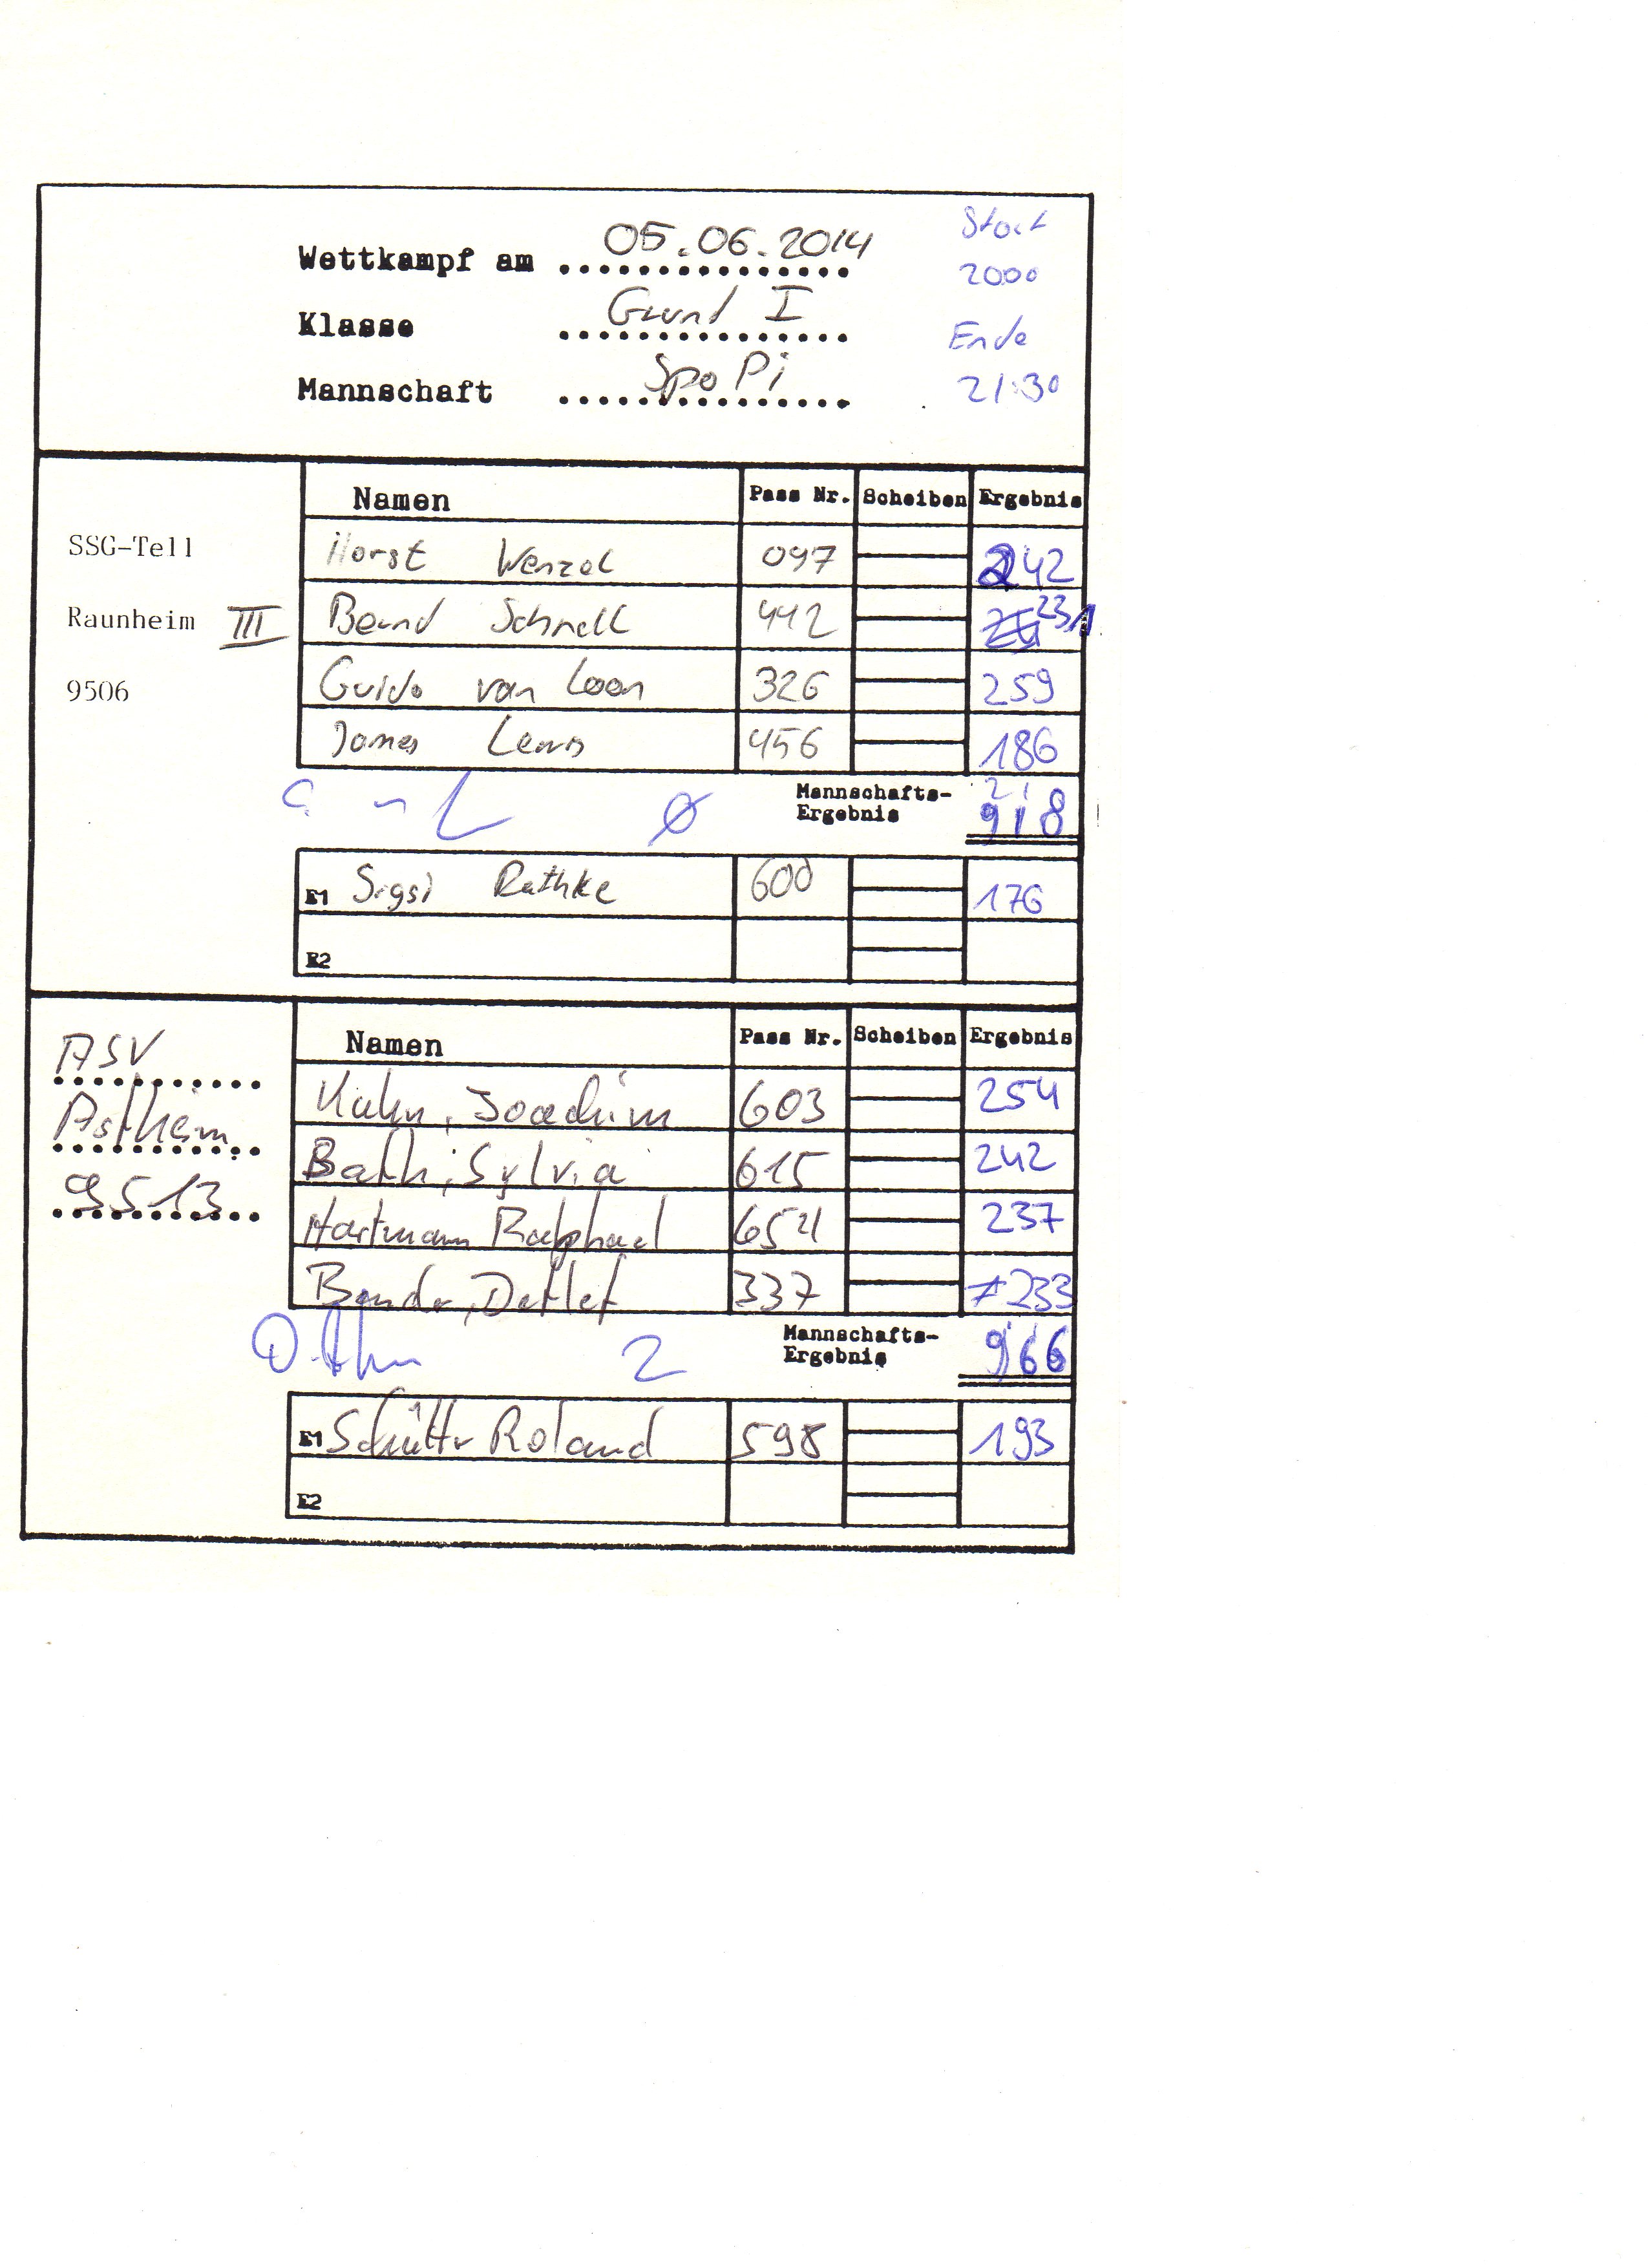 Wettkampf am 05.06.2014 Start
20:00
Klasse Grund I Ende
Mannschaft SpoPi 21:30
Namen Pass Nr. Scheiben Ergebnis
SSG-Tell Horst Wenzel 097 242
Raunheim III Bernd Schnell 442 231
9506 Guido van Loon 326 259
James Lewis 456 186
Mannschafts-
Ergebnis 918
0
E1 Sigsi Rathke 600 176
E2
Namen Pass Nr. Scheiben Ergebnis
ASV Kuhn, Joachim 603 254
Astheim Bath, Sylvia 615 242
9513 Hartmann Raphael 654 237
Bender, Detlef 337 233
Mannschafts-
Ergebnis 966
2
E1 Schütte Roland 598 193
E2